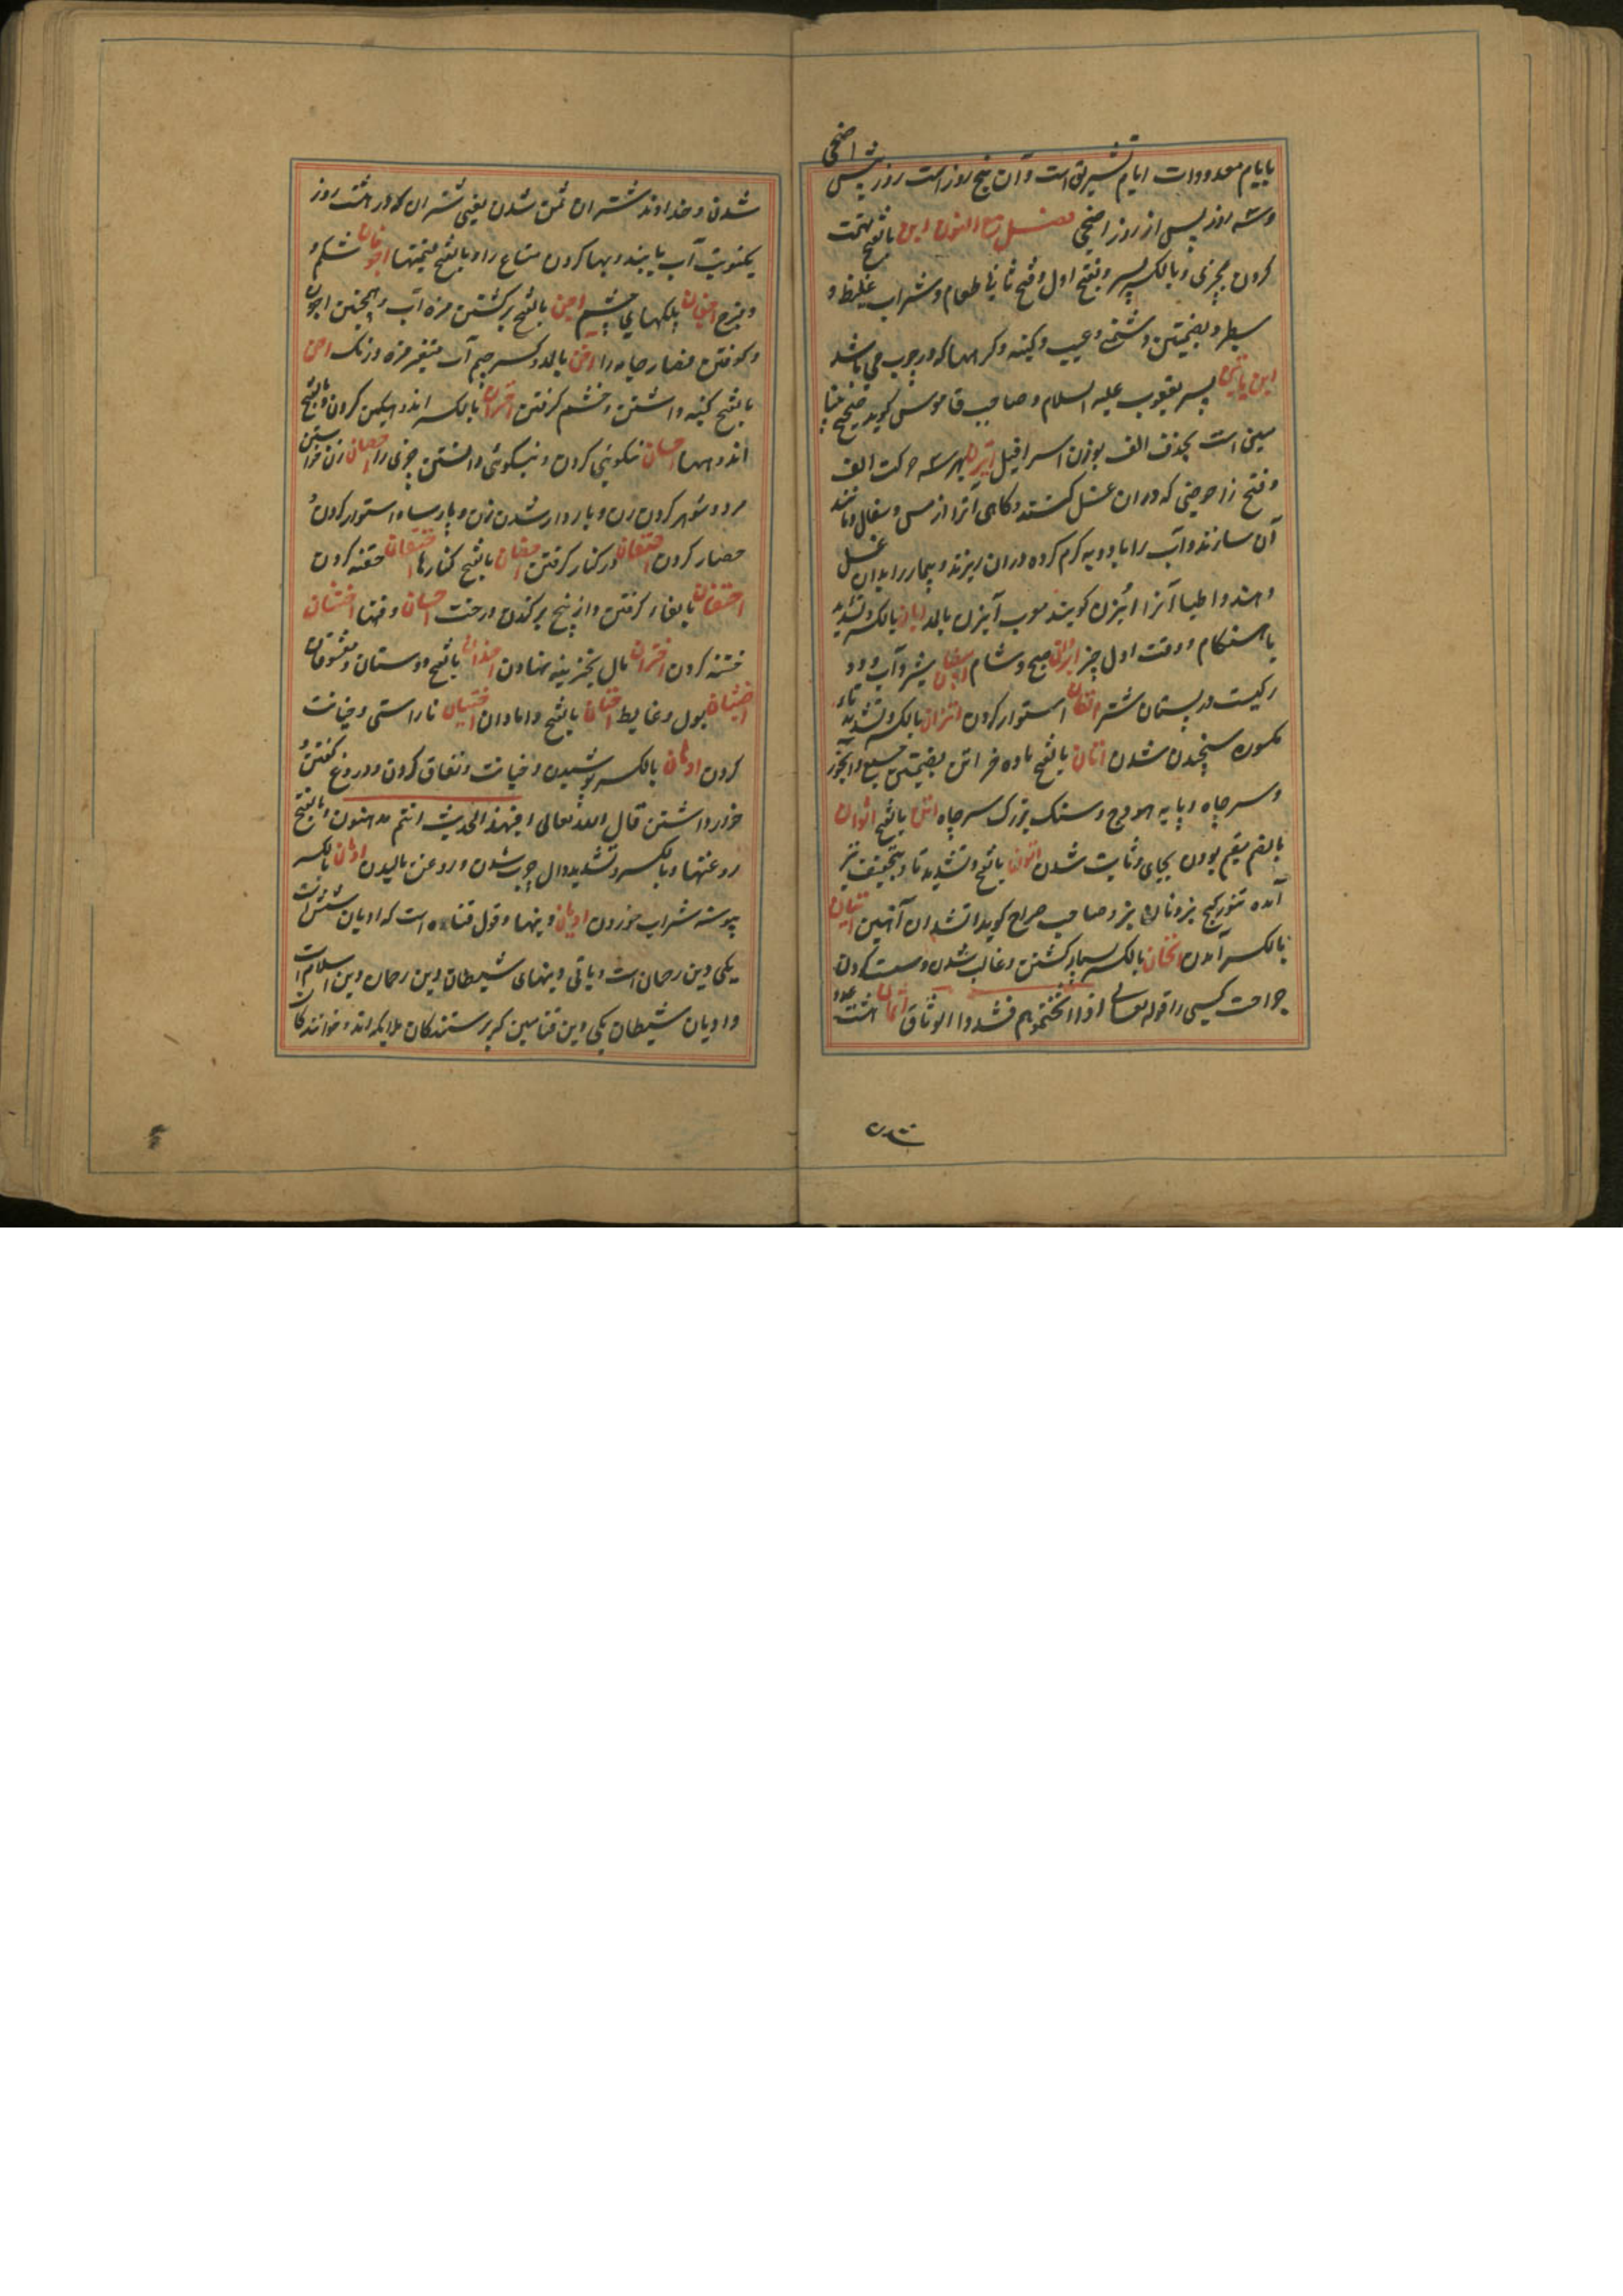 بایام معدودات ایام تشریق است و آن پنج روز است روز پیش اضحی
و سه روز پس از روز اضحی فصل مع النون ابن بالفتح تهمت
کردن بچیزی و بالکسر پسر و بفتح اول و فتح ثانیا طعام و شراب غلیظ و
سطبر و بضمتین دشمنی و عیب و کینه و کرهها که در چوب می باشد
ابن یامین پسر یعقوب علیه السلام و صاحب قاموس کوید صحیح بنیا
مین است بحذف الف بوزن اسرافیل ابزن بهر سه حرکت الف
و فتح زا حوضی که دران غسل کنند و کاهی آنرا از مس و سفال و مانند
آن سازند و آب را بادویه کرم کرده دران ریزند و بیمار را بدان غسل
دهند و اطبا آنرا ابزن کویند معرب آبزن بالمد ابان بالکسر و تشدید
با هنکام و وقت اول چیز صبح و شام شیر و آب و دو
رکیست در پستان شتر اتقان استوار کردن اتزان بالکسر و تشدید تاء
مکسوره سنجیدن شدن اتان بالفتح ماده خر اتن بضمتین جمع و آبخور
و سر چاه و پایه هودج و سنک بزرک سر چاه اتن بالفتح اتوان
بالضم مقیم بودن بجای و ثابت شدن اتون بالفتح و تشدید تا و بتخفیف نیز
آمده تنور کچ پز و نان پز و صاحب صراح کوید آتشدان آهنین اتیان
بالکسر آمدن اثخان بالکسر بسیار کشتن و غالب شدن و سست کردن
جراحت کسی را قوله تعالی اذا اثخنتموهم فشدوا الوثاق اثمان هشت عدد
شدن و خداوند شتران ثمن شدن یعنی شتران که در هشت روز
یکنوبت آب یابند و بها کردن متاع را و بالفتح قیمتها اجوفان شکم و
و فرج اجفان پلکهای چشم اجن بالفتح برکشتن مزه آب و همچنین اجون
و کوفتن قصار جامه را آجن بالمد و کسر جیم آب متغیر مزه و رنک احن
بالفتح کینه داشتن و خشم کرفتن احزان بالکسر اندوهکین کردن و بالفتح
اندوهها احسان نیکویی کردن و نیکوئی دانستن چیزی را احصان زن خواستن
مرد و شوهر کردن زن و باردار شدن زن و پارسا و استوار کردن و
حصار کردن احتضان در کنار کرفتن احضان بالفتح کنارها احتقان حقنه کردن
احتفان بفاء کرفتن و از بیخ برکندن درخت احیان وقتها اختتان
ختنه کردن اختزان مال بخزینه نهادن اخدان بالفتح دوستان و معشوقان
اخبثان بول و غایط اختان بالفتح دامادان اختیان ناراستی و خیانت
کردن ادهان بالکسر پوشیدن و خیانت و نفاق کردن و دروغ کفتن و
خوار داشتن قال الله تعالی افبهذا الحدیث انتم مدهنون و بالفتح
روغنها و بالکسر و تشدید دال چرب شدن و روغن مالیدن ادمان بالکسر
پیوسته شراب خوردن ادیان دینها و قول قتاده است که ادیان شش است
یکی دین رحمان است و باقی دینهای شیطان دین رحمان دین اسلام است
و ادیان شیطان یکی دین که پرستندکان ملایکه اند و خوانندکان